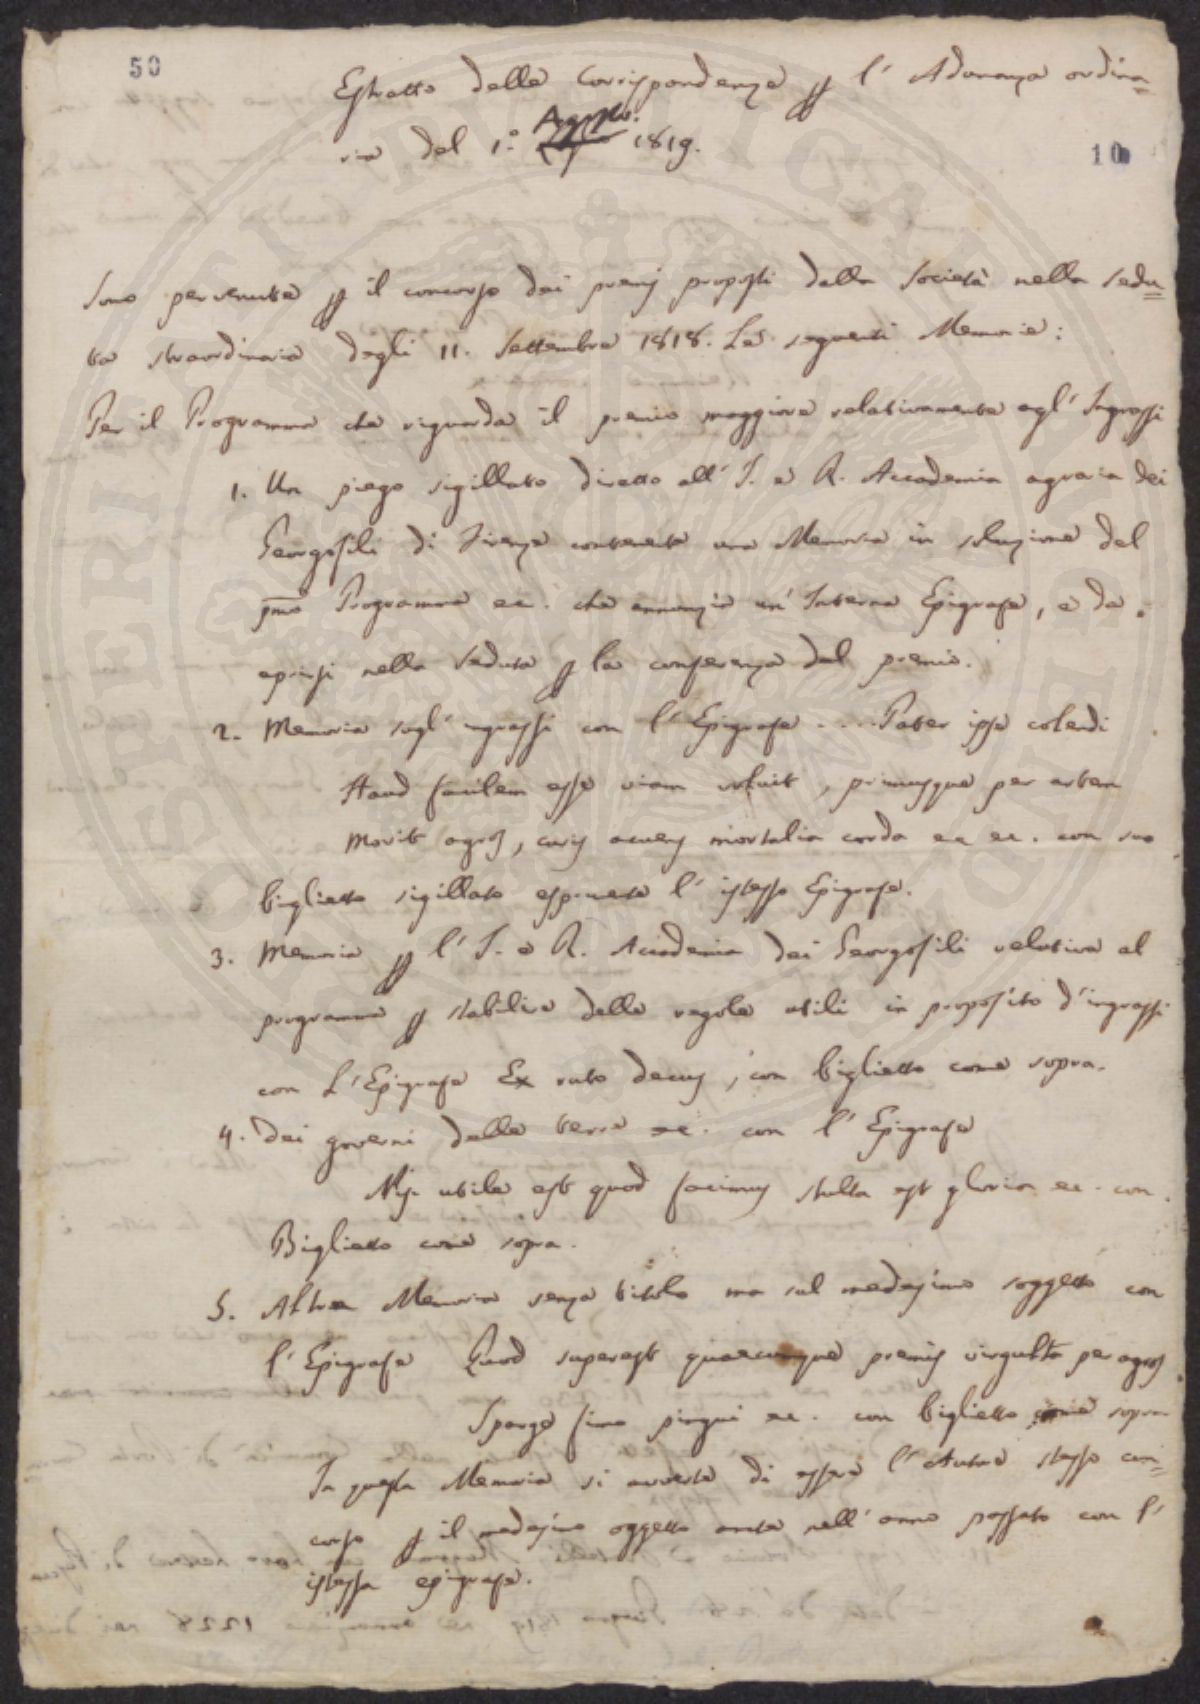 50
Estratto della Corrispondenza p l' Adunanza ordina=
ria del 1.° Agosto 1819.
10
Sono pervenute p il concorso dei premj proposti dalla Società nella Sedu=
ta straordinaria degli 11. Settembre 1818. Le seguenti Memorie:
Per il Programma che riguarda il premio maggiore relativamente agl' Ingrassi
1. Un piego sigillato diretto all' I. e R. Accademia agraria dei
Georgofili di Firenze contenente una Memoria in soluzione del
pmo Programma ec. che annunzia un' Interna Epigrafe, e da
aprirsi nella Seduta p la conferenza del premio.
2. Memoria sugl' ingrassi con l' Epigrafe .... Pater ipse colendi
Haud facilem esse viam voluit, primusque per artem
Movit agros, curis acuens mortalia corda ec ec. con suo
biglietto sigillato esprimente l' istessa Epigrafe.
3. Memoria p l' I. e R. Accademia dei Georgofili relativa al
programma p stabilire delle regole utili in proposito d'ingrassi
con L'Epigrafe Ex rute decus, con biglietto come sopra.
4. Dei governi della terra ec. con l' Epigrafe
Nisi utile est quod facimus stulta est gloria ec. con
Biglietto come sopra.
5. Altra Memoria senza titolo ma sul medesimo soggetto con
l' Epigrafe Quod superest quaecumque premes virgulta per agros
Sparge fimo pingui ec. con biglietto come sopra
In questa Memoria si avverte di essere l' Autore stesso con=
corso p il medesimo oggetto anche nell' anno passato con l'
istessa epigrafe.